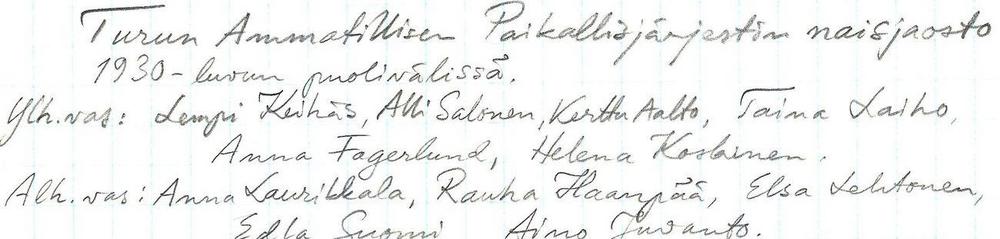 Turun Ammatillisen Paikallisjärjestön naisjaosto
1930-luvun puolivälissä.
Ylh. vas: Lempi Keihäs, Alli Salonen, Kerttu Aalto, Taina Laiho,
Anna Fagerlund, Helena Koskinen.
Alh. vas: Anna Laurikkala, Rauha Haanpää, Elsa Lehtonen,
Edla Suomi Aino Juvanto.